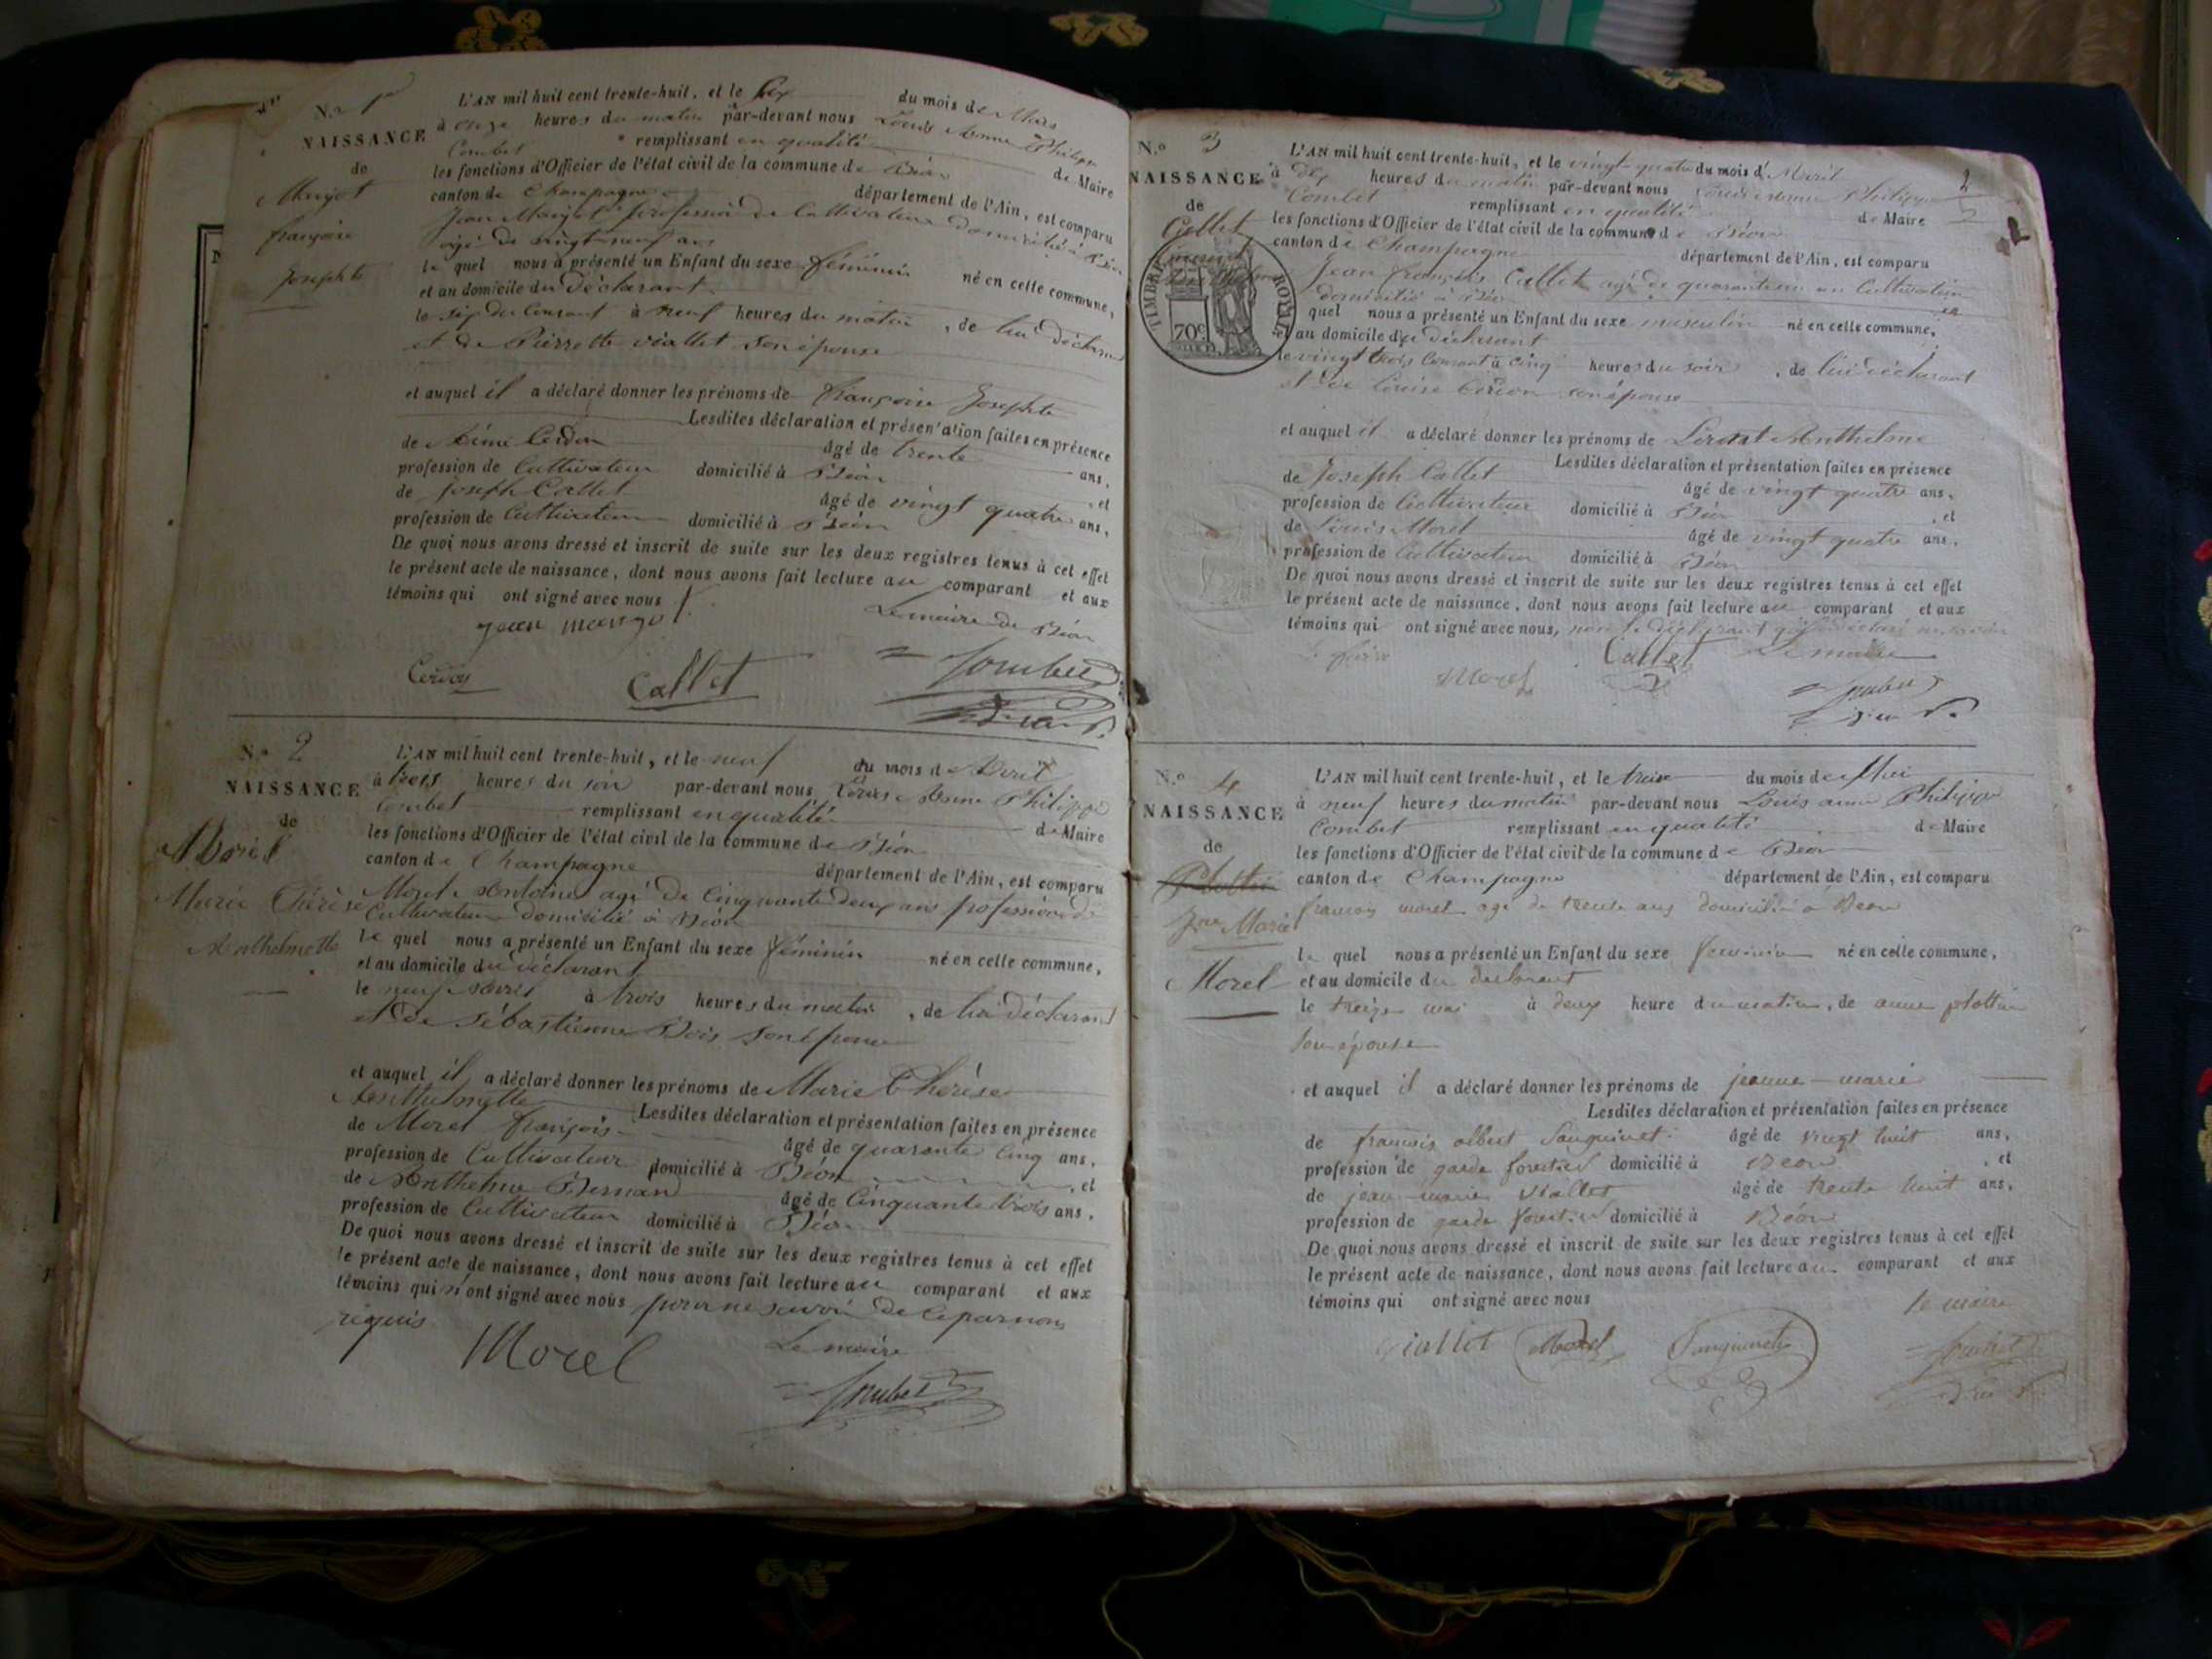 N.o 1er
NAISSANCE
de
Mangot
françoise
Josephte
L'AN mil huit cent trente-huit, et le six du mois de Mars
à onze heures du matin par-devant nous Louis Anne Philippe
Combet remplissant en qualité de Maire
les fonctions d'Officier de l'état civil de la commune de Béon
canton de Champagne département de l'Ain, est comparu
Jean profession de Cultivateur domicilié à Béon
agé de vingt neuf ans
le quel nous a présenté un Enfant du sexe féminin né en cette commune,
et au domicile du déclarant
le six du Courant à neuf heures du matin, de lui déclarant
et de Pierrette Viallet son épouse
et auquel il a déclaré donner les prénoms de françoise Josephte
Lesdites déclaration et présentation faites en présence
de Aimé Cerdon âgé de trente ans,
profession de Cultivateur domicilié à Béon, et
de Joseph Callet âgé de vingt quatre ans,
profession de Cultivateur domicilié à Béon
De quoi nous avons dressé et inscrit de suite sur les deux registres tenus à cet effet
le présent acte de naissance, dont nous avons fait lecture au comparant et aux
témoins qui ont signé avec nous
Le maire de Béon
jean
Callet
Combet
N.o 2
NAISSANCE
de
Morel
Marie Thérèse
Anthelmette
L'AN mil huit cent trente-huit, et le neuf du mois d'Avril
à trois heures du soir par-devant nous Louis Anne Philippe
Combet remplissant en qualité de Maire
les fonctions d'Officier de l'état civil de la commune de Béon
canton de Champagne département de l'Ain, est comparu
Morel Antoine agé de Cinquante deux ans profession de
Cultivateur domicilié à Béon
le quel nous a présenté un Enfant du sexe féminin né en cette commune,
et au domicile du déclarant
le neuf Avril à trois heures du matin, de lui déclarant
et de Sébastienne Bois son épouse
et auquel il a déclaré donner les prénoms de Marie Thérèse
Anthelmette Lesdites déclaration et présentation faites en présence
de Morel françois âgé de quarante cinq ans,
profession de Cultivateur domicilié à Béon, et
de Anthelme Bernard âgé de Cinquante trois ans,
profession de Cultivateur domicilié à Béon
De quoi nous avons dressé et inscrit de suite sur les deux registres tenus à cet effet
le présent acte de naissance, dont nous avons fait lecture au comparant et aux
témoins qui n'ont signé avec nous pour ne savoir de ce par nous
requis
Morel
Le maire
Combet
N.o 3
NAISSANCE
de
Callet
TIMBRE ROYAL
70c
2
L'AN mil huit cent trente-huit, et le vingt quatre du mois d'Avril
à dix heures du matin par-devant nous Louis Anne Philippe
Combet remplissant en qualité de Maire
les fonctions d'Officier de l'état civil de la commune de Béon
canton de Champagne département de l'Ain, est comparu
Jean françois Callet agé de quarante un ans Cultivateur
domicilié à Béon
quel nous a présenté un Enfant du sexe masculin né en cette commune,
et au domicile du déclarant
le vingt trois Courant à Cinq heures du soir, de lui déclarant
et de Louise Cerdon son épouse
et auquel il a déclaré donner les prénoms de Anthelme
Lesdites déclaration et présentation faites en présence
de Joseph Callet âgé de vingt quatre ans,
profession de Cultivateur domicilié à Béon, et
de Louis Morel âgé de vingt quatre ans,
profession de Cultivateur domicilié à Béon
De quoi nous avons dressé et inscrit de suite sur les deux registres tenus à cet effet
le présent acte de naissance, dont nous avons fait lecture au comparant et aux
témoins qui ont signé avec nous, non le déclarant
Le maire
Morel
Callet
Combet
N.o 4
NAISSANCE
de
Plottin
Jne Marie
Morel
L'AN mil huit cent trente-huit, et le treize du mois de Mai
à neuf heures du matin par-devant nous Louis anne Philippe
Combet remplissant en qualité de Maire
les fonctions d'Officier de l'état civil de la commune de Béon
canton de Champagne département de l'Ain, est comparu
francois morel agé de trente ans domicilié à Béon
le quel nous a présenté un Enfant du sexe feminin né en cette commune,
et au domicile du declarant
le treize mai à deux heure du matin, de anne plottin
son épouse
et auquel il a déclaré donner les prénoms de jeanne-marie
Lesdites déclaration et présentation faites en présence
de francois albert Sanguinet âgé de vingt huit ans,
profession de garde forestier domicilié à Béon, et
de jean-marie Viallet âgé de trente huit ans,
profession de garde forestier domicilié à Béon
De quoi nous avons dressé et inscrit de suite sur les deux registres tenus à cet effet
le présent acte de naissance, dont nous avons fait lecture au comparant et aux
témoins qui ont signé avec nous
le maire
Viallet
Morel
Sanguinet
Combet